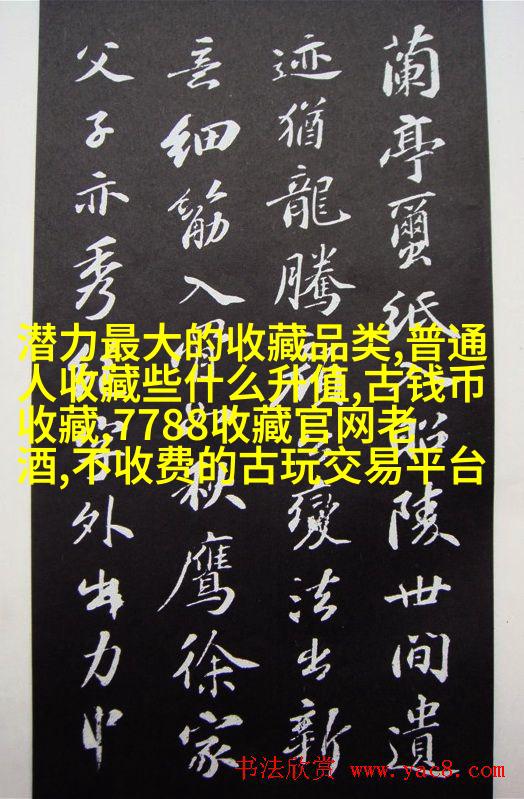 蘭亭蠒紙入昭陵世間遺
迹猶龍騰顏公變法出新
意細筋入骨如秋鷹徐家
父子亦秀絕字外出力中
潜力最大的收藏品类,普通
人收藏些什么升值,古钱币
收藏,7788收藏官网老
酒,不收费的古玩交易平台
书法欣赏 www.yac8.com